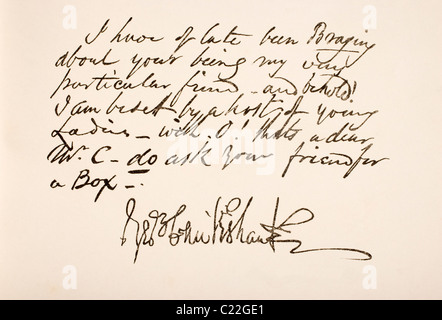 I have of late been Braging
about your being my very
particular friend - and behold!
I am beset by a host of young
Ladies - with O! thats a dear
Mr. C - do ask your friend for
a Box -.
Geo Cruikshank
alamy
Image ID: C22GE1
www.alamy.com